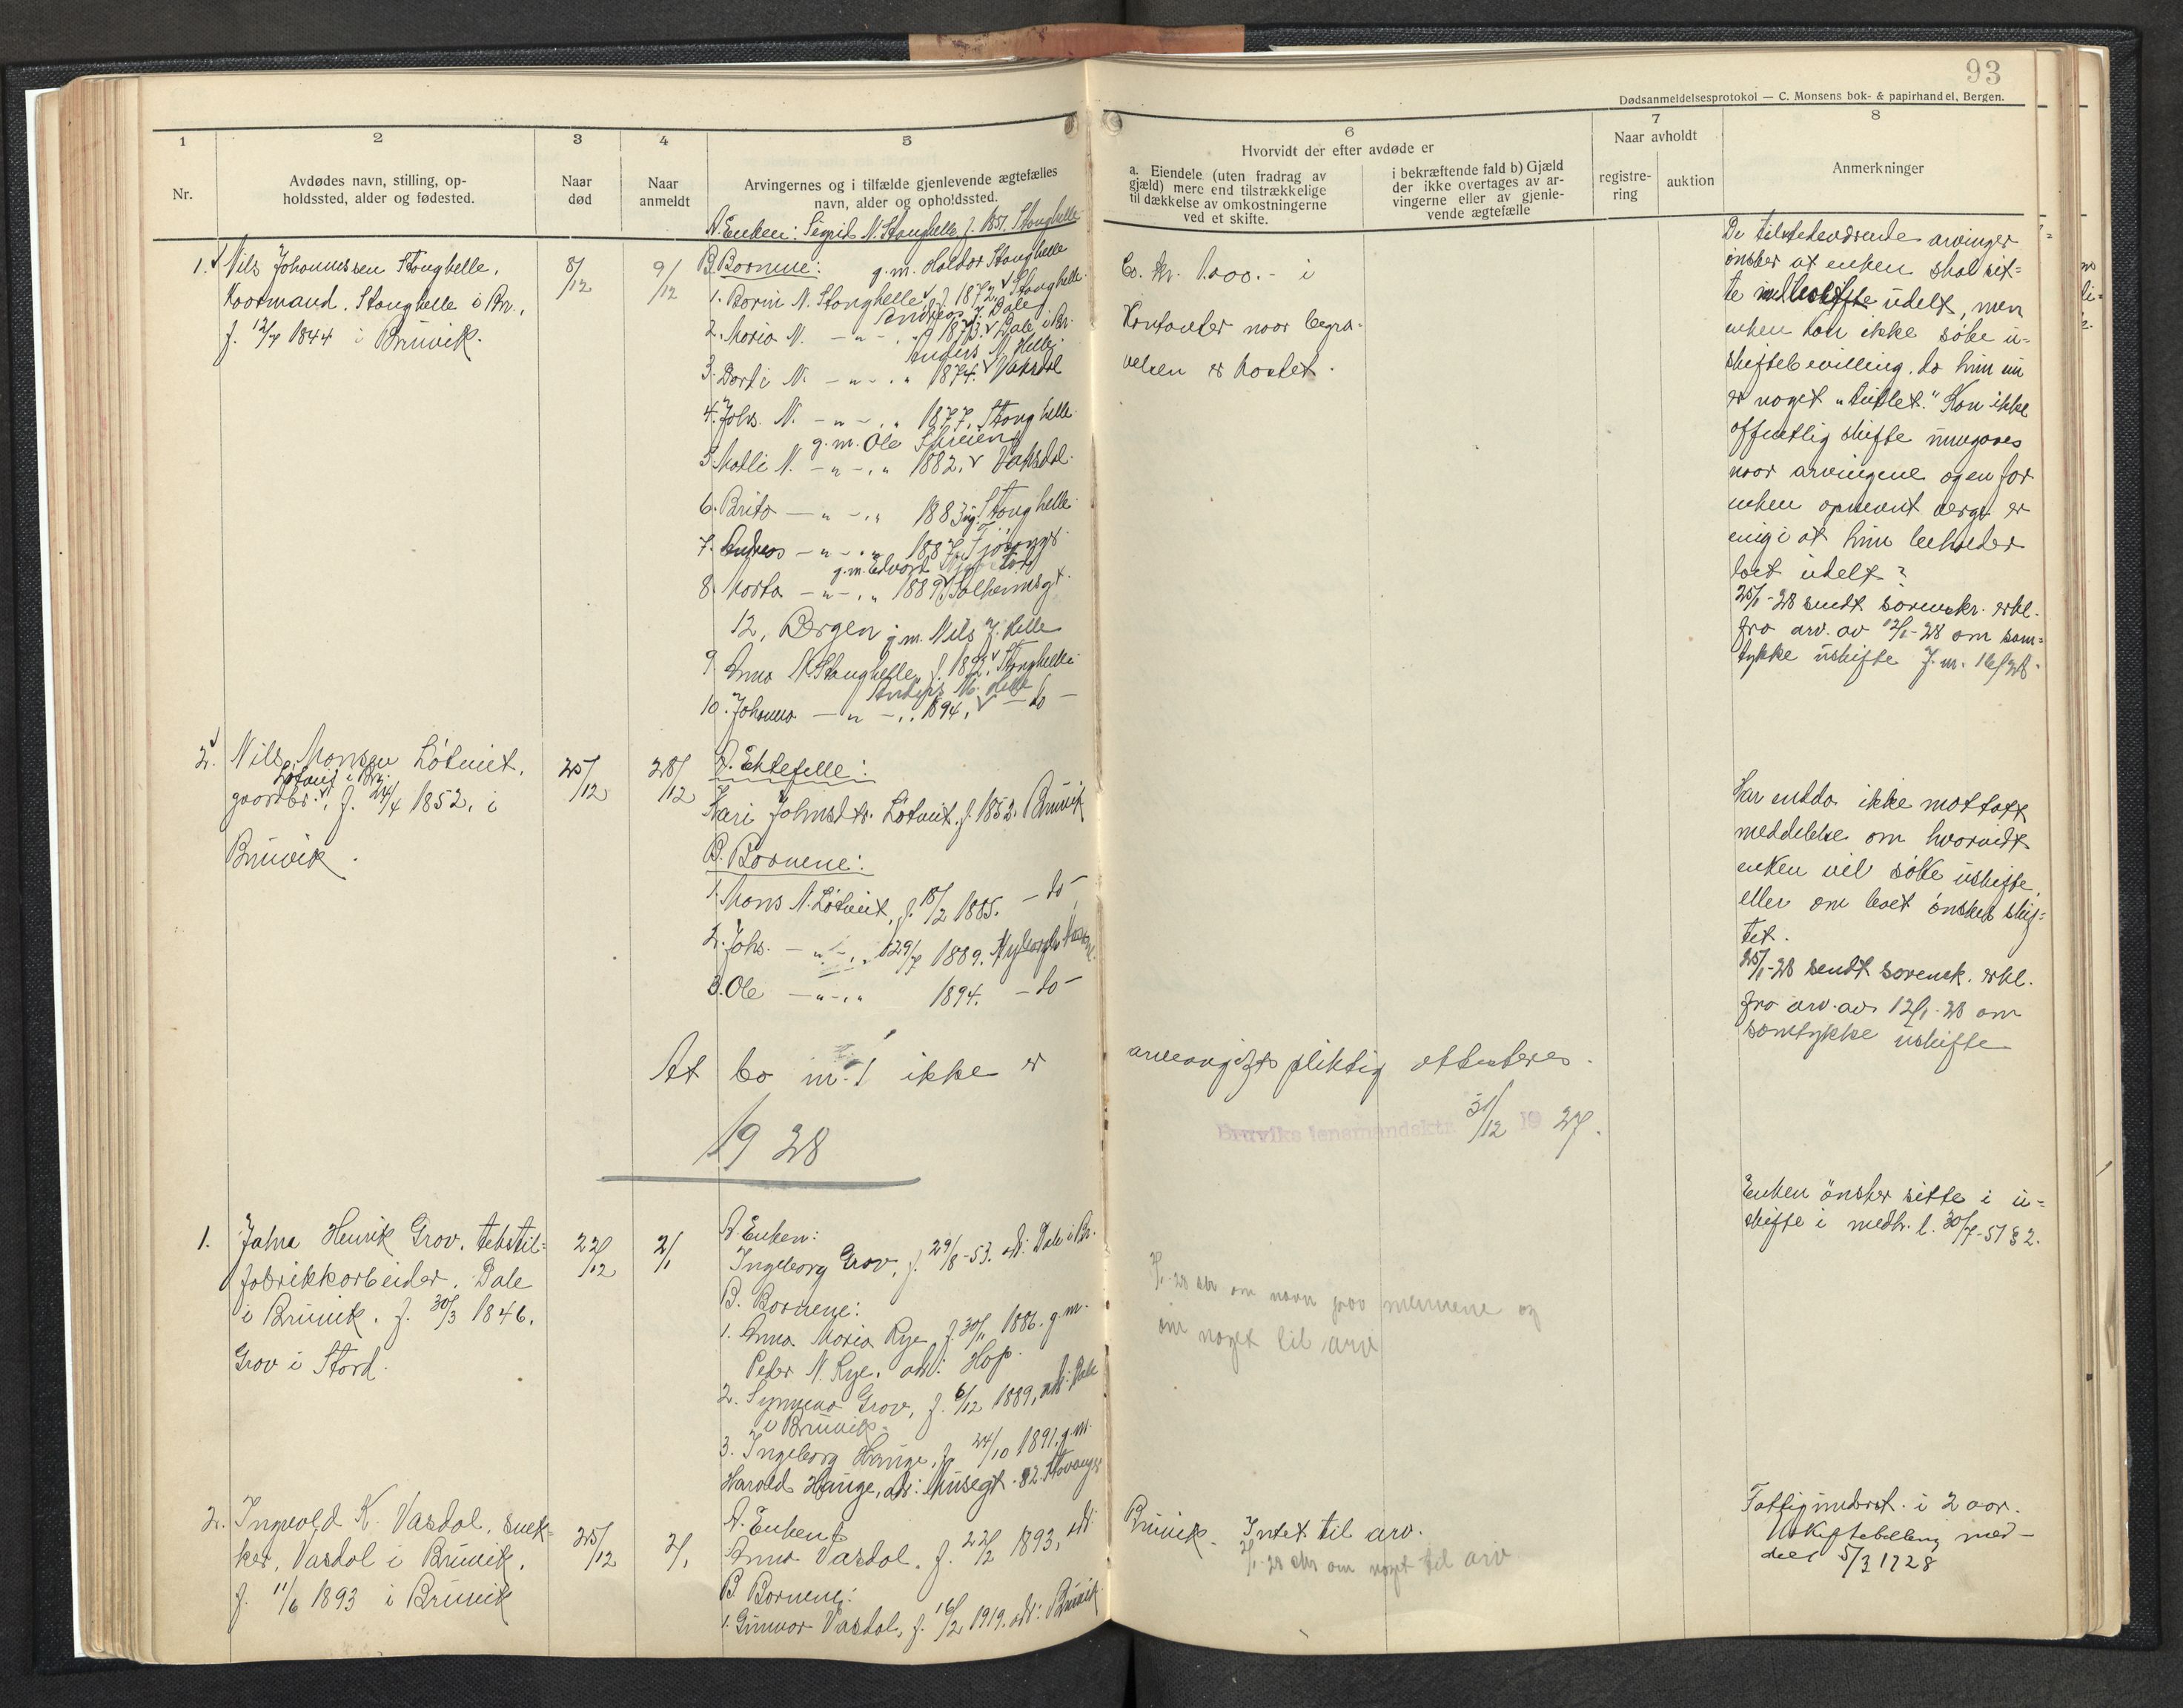 93
Dødsanmeldelsesprotokol — C. Monsens bok- & papirhandel, Bergen.
1
2
3
4
5
6
7
8
Nr.
Avdødes navn, stilling, op-
holdssted, alder og fødested.
Naar
død
Naar
anmeldt
Arvingernes og i tilfælde gjenlevende ægtefælles
navn, alder og opholdssted.
Hvorvidt der efter avdøde er
a. Eiendele (uten fradrag av
gjæld) mere end tilstrækkelige
til dækkelse av omkostningerne
ved et skifte.
i bekræftende fald b) Gjæld
der ikke overtages av ar-
vingerne eller av gjenle-
vende ægtefælle
Naar avholdt
registre-
ring
auktion
Anmerkninger
1. Nils Johannessen Stanghelle,
Kaarmand. Stanghelle i Br.,
f. 12/7 1844 i Bruvik.
8/12
9/12
A. Enken: Sigrid N. Stanghelle f. 1851. Stanghelle
B. Barnene: g.m. Haldor Stanghelle
1. Borni N. Stanghelle, f. 1872, Stanghelle.
Andreas Dale
2. Maria N. — " — " 1873. Dale i Br.
Anders N. Helle
3. Dorti N. — " — " 1874. Vaksdal
4. Johs. N. — " — " 1877. Stanghelle.
g.m. Ole Skreien
5. Malli N. — " — " 1882. Vaksdal.
6. Brita — " — " 1883 ug. Stanghelle
7. Andreas — " — " 1887,
g.m. Edvard
8. Marta — " — " 1889. Solheimsgt.
12, Bergen g.m. Nils J. Helle
9. Anna N. Stanghelle, f. 1892, Stanghelle
Anders M. Helle
10. Johanna — " — " 1894, — do —
Ca. kr. 1000.- i
Kontanter naar begra-
velsen er kostet.
De tilstedeværende arvinger
ønsker at enken skal sit-
te udelt, men
enken kan ikke søke u-
skiftebevilling, da hun nu
er noget "tullet." Kan ikke
offentlig skifte undgaaes
naar arvingene og en for
enken opnevnt verge er
enig i at hun beholder
boet udelt?
25/1-28 sendt sorenskr. erkl.
fra arv. av 12/1-28 om sam-
tykke uskifte J. nr.
2. Nils Monsen Løtveit,
Løtveit i Br.
gaardbr., f. 24/4 1852, i
Bruvik.
25/12
28/12
A. Ektefelle:
Kari Johnsdtr. Løtveit, f. 1852. Bruvik
B. Barnene:
1. Mons N. Løtveit, f. 18/2 1885. — do —
2. Johs. — " — " 29/7 1889.
3. Ole — " — " 1894. — do —
Har endda ikke mottatt
meddelelse om hvorvidt
enken vil søke uskifte,
eller om boet ønskes skif-
tet.
25/1-28 sendt sorensk. erkl.
fra arv. av 12/1-28 om
samtykke uskifte
At bo nr. 1 ikke er arveavgiftspliktig attesteres.
Bruviks lensmandsktr. 31/12 1927.
1928
1. Johna Henrik Grov, tekstil-
fabrikkarbeider. Dale
i Bruvik. f. 30/3 1846.
Grov i Stord.
22/12
2/1
A. Enken:
Ingeborg Grov, f. 29/8-53. adr: Dale i Br.
B. Barnene:
1. Anna Maria Rye, f. 30/11 1886. g.m.
Peder N. Rye, adr: Hop.
2. Synneva Grov, f. 6/12 1889, adr: Dale
i Bruvik.
3. Ingeborg Hauge, f. 24/10 1891, g.m.
Harald Hauge, adr: Musegt. 82. Stavanger
2/1-28 skr om navn paa mennene og
om noget til arv
Enken ønsker sitte i u-
skifte i medh. l. 30/7-51 § 2.
2. Ingvald K. Vasdal, snek-
ker, Vasdal i Bruvik,
f. 11/6 1893 i Bruvik
25/12
2/1
A. Enken:
Anna Vasdal, f. 22/2 1893, adr:
Bruvik.
B. Barnene:
1. Gunvor Vasdal, f. 16/2 1919, adr: Bruvik
Intet til arv.
2/1-28 skr om noget til arv
Fattigunderst. i 2 aar.
Uskiftebevilling med-
delt 5/3 1928